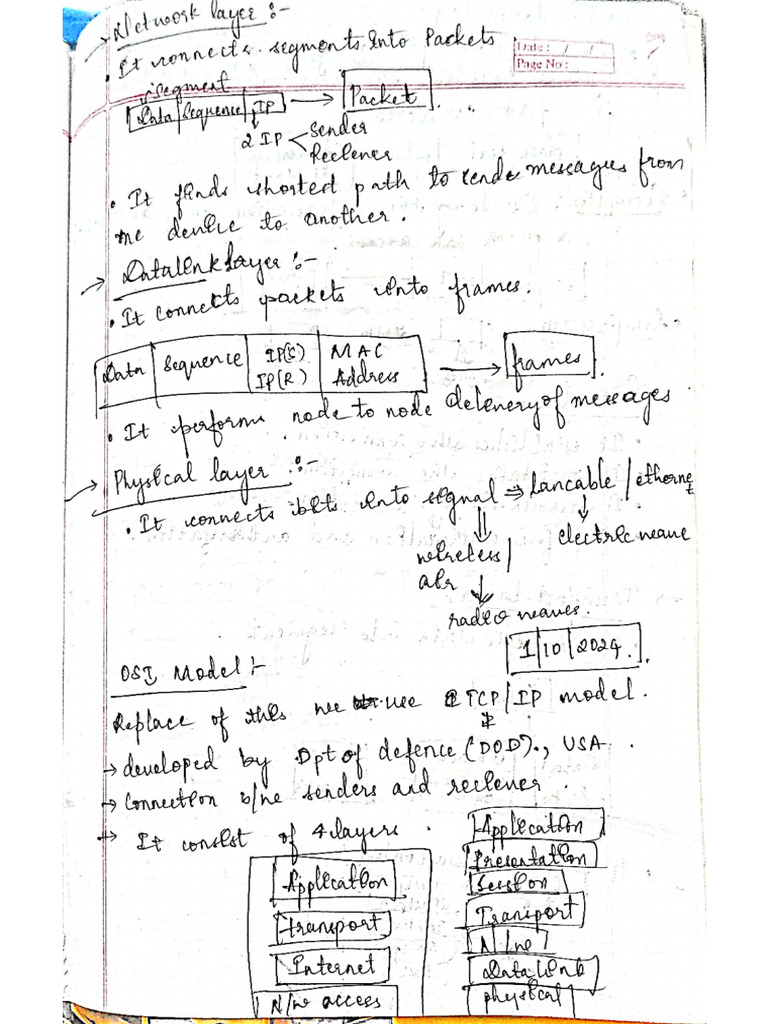 Network layer :-
Date : / /
Page No :
• It connects segments into Packets
segment
Data | Sequence | IP → Packet.
2 IP < Sender
Reciever
• It finds shortest path to sends messages from
one device to another.
→ Datalink layer :-
• It connects packets into frames.
Data | Sequence | IP(S) IP(R) | MAC Address → frames.
• It performs node to node delivery of messages
→ Physical layer :-
• It connects bits into signal ⇒ Lancable / ethernet
wireless / air
electric wave
radio waves.
1 | 10 | 2024.
OSI Model :-
Replace of this we use TCP/IP model.
→ developed by Dpt of defence (DOD)., USA.
→ Connection b/w senders and reciever.
→ It consist of 4 layers.
Application
Transport
Internet
N/w access
Application
Presentation
Session
Transport
N/w
Data link
physical